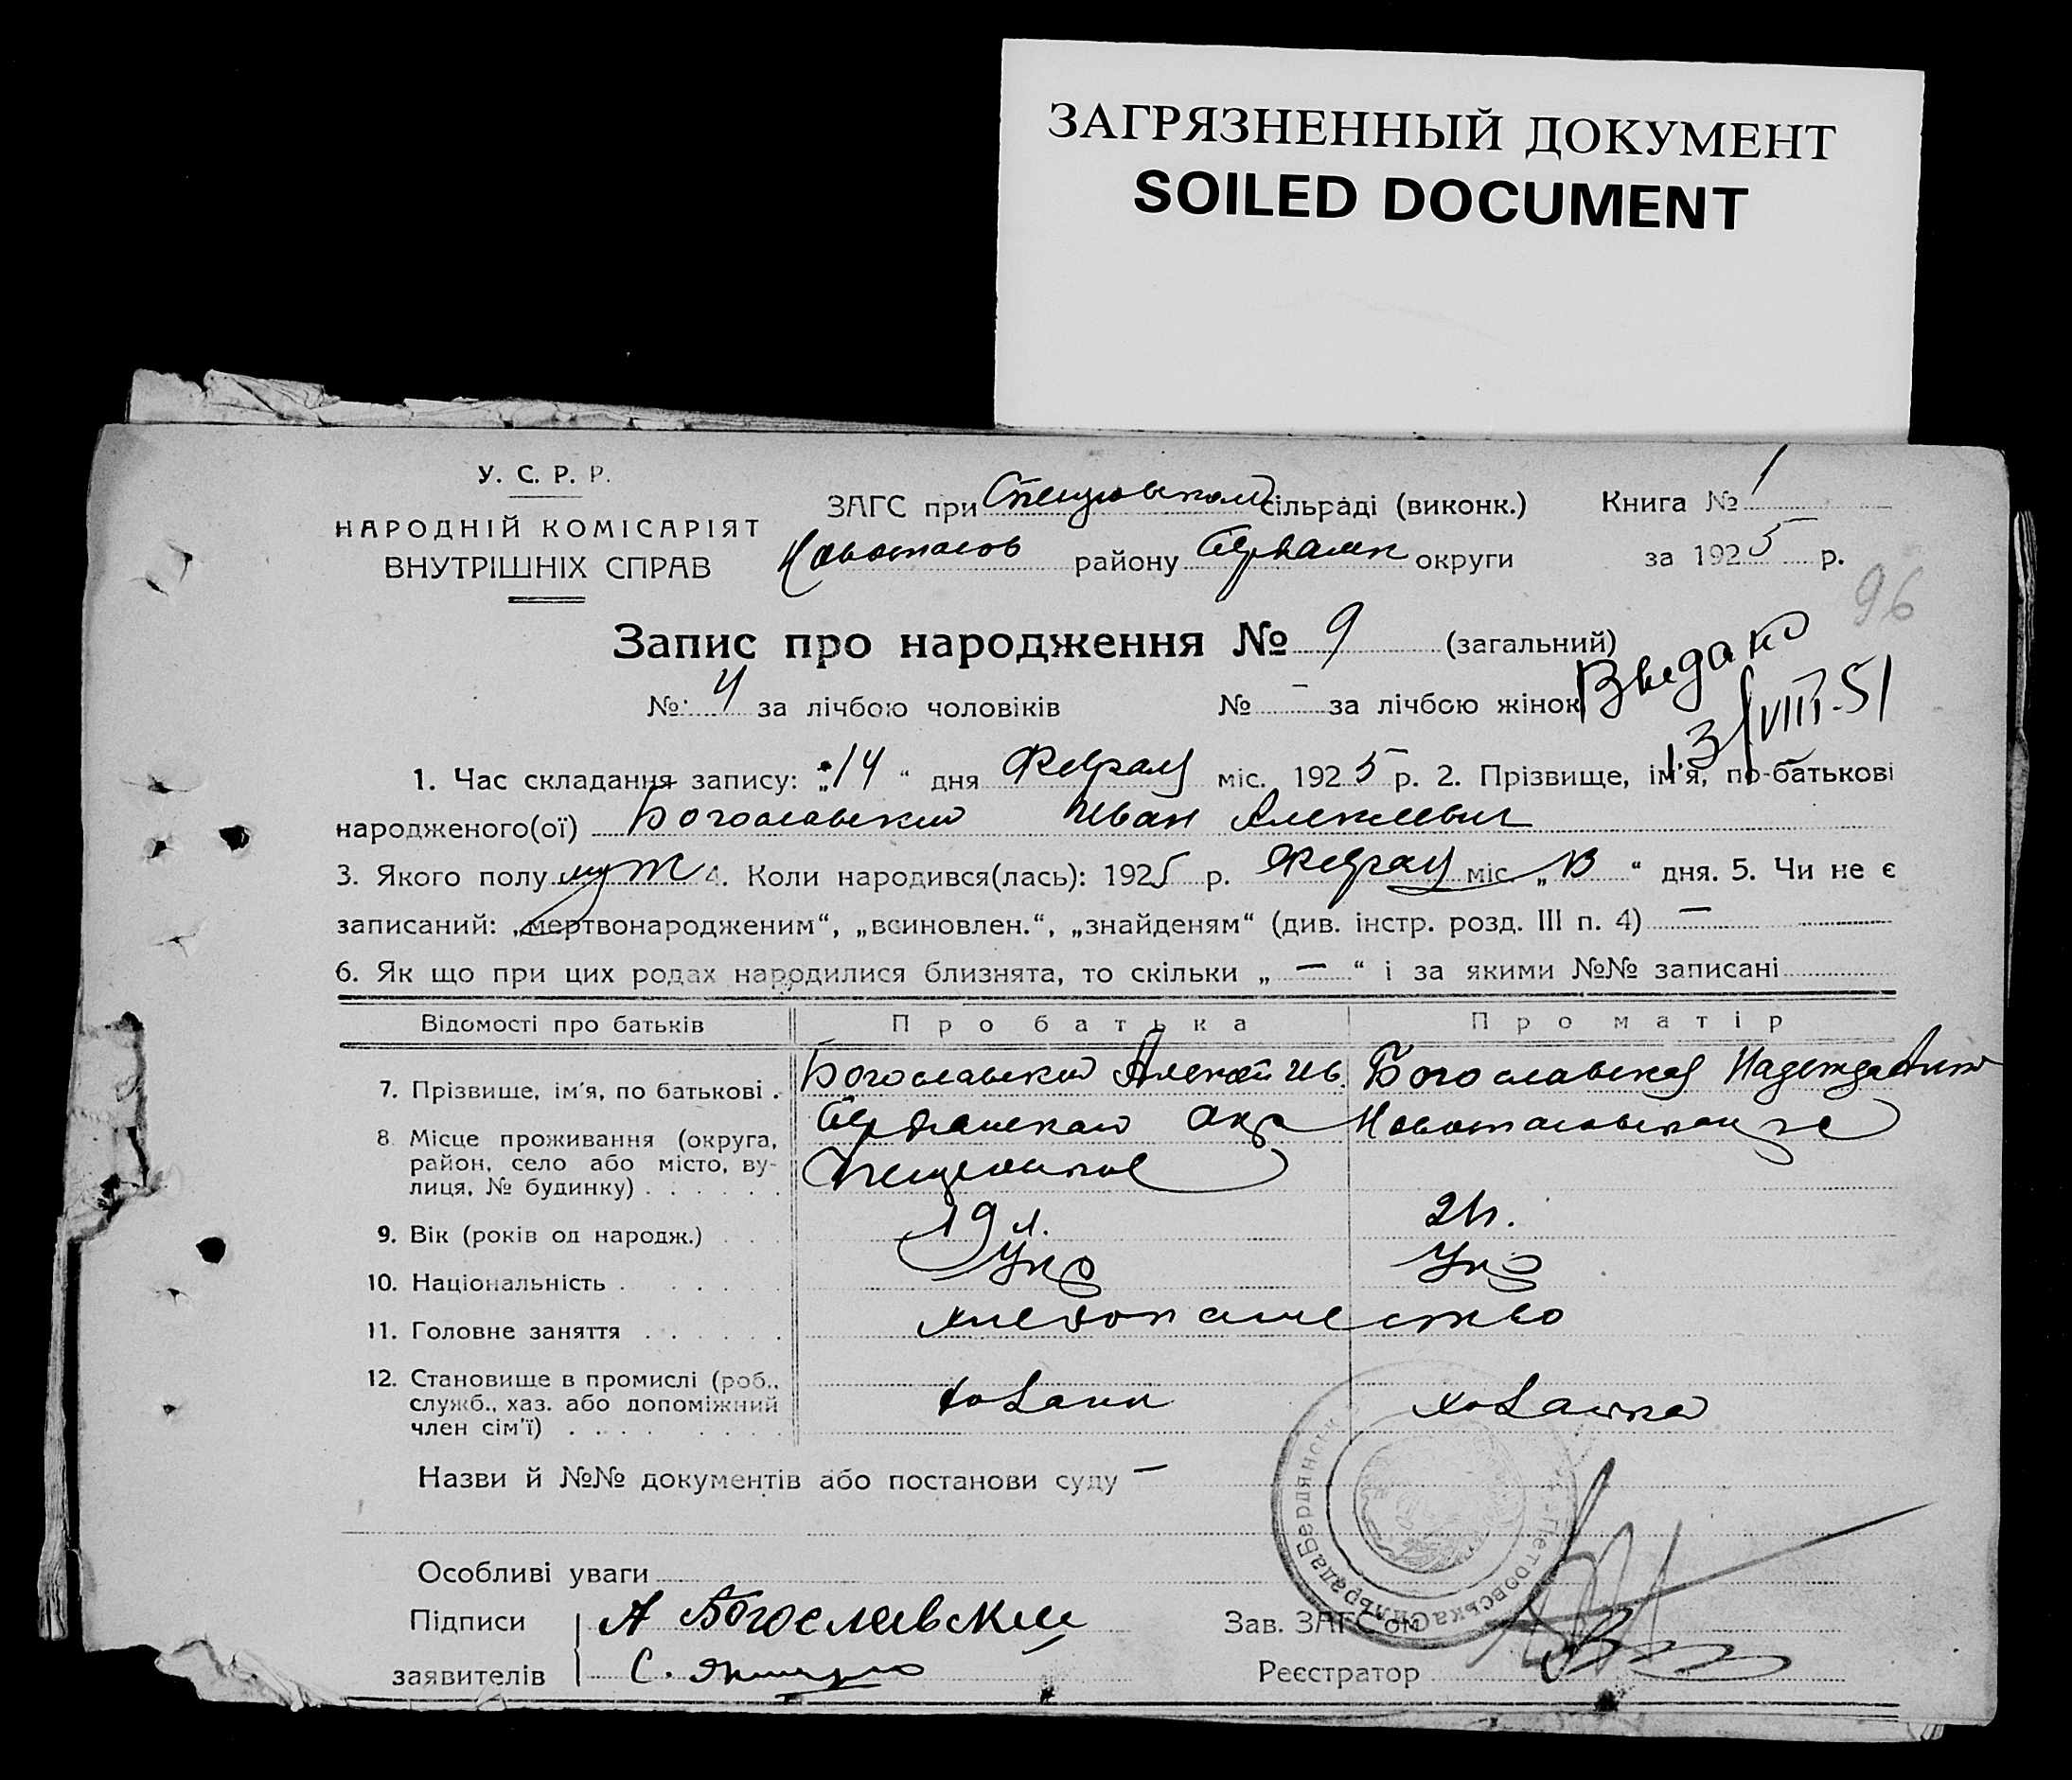 ЗАГРЯЗНЕННЫЙ ДОКУМЕНТ
SOILED DOCUMENT
У. С. Р. Р.
НАРОДНІЙ КОМІСАРІЯТ
ВНУТРІШНІХ СПРАВ
ЗАГС при сільраді (виконк.) Книга № 1
району округи за 1925 р.
96
Запис про народження № 9 (загальний)
№ 4 за лічбою чоловіків № – за лічбою жінок
13/VIII-51
1. Час складання запису: „14“ дня Феврал міс. 1925 р. 2. Прізвище, ім'я, по-батькові
народженого(ої) Богославский Иван Алексеевич
3. Якого полу муж 4. Коли народився(лась): 1925 р. Феврал міс. „13“ дня. 5. Чи не є
записаний: „мертвонародженим“, „всиновлен.“, „знайденям“ (див. інстр. розд. III п. 4) –
6. Як що при цих родах народилися близнята, то скільки „ – “ і за якими №№ записані
Відомості про батьків Про батька Про матір
7. Прізвише, ім'я, по батькові . Богославский Алексей Ив. Богославская Надежда
8. Місце проживання (округа, район, село або місто, вулиця, № будинку) . . . . . . Бердянской окр
9. Вік (років од народж.) . . . 19 л. 21
10. Національність . . . . . Укр Укр
11. Головне заняття . . . . . . хлебопашество
12. Становище в промислі (роб., служб., хаз. або допоміжний член сім'ї) . . . . . . . . хозаин хозаика
Назви й №№ документів або постанови суду –
Особливі уваги
Підписи А Богославский Зав. ЗАГС'ом
заявителів С. Реєстратор
Петровська Сильрада Бердянськ